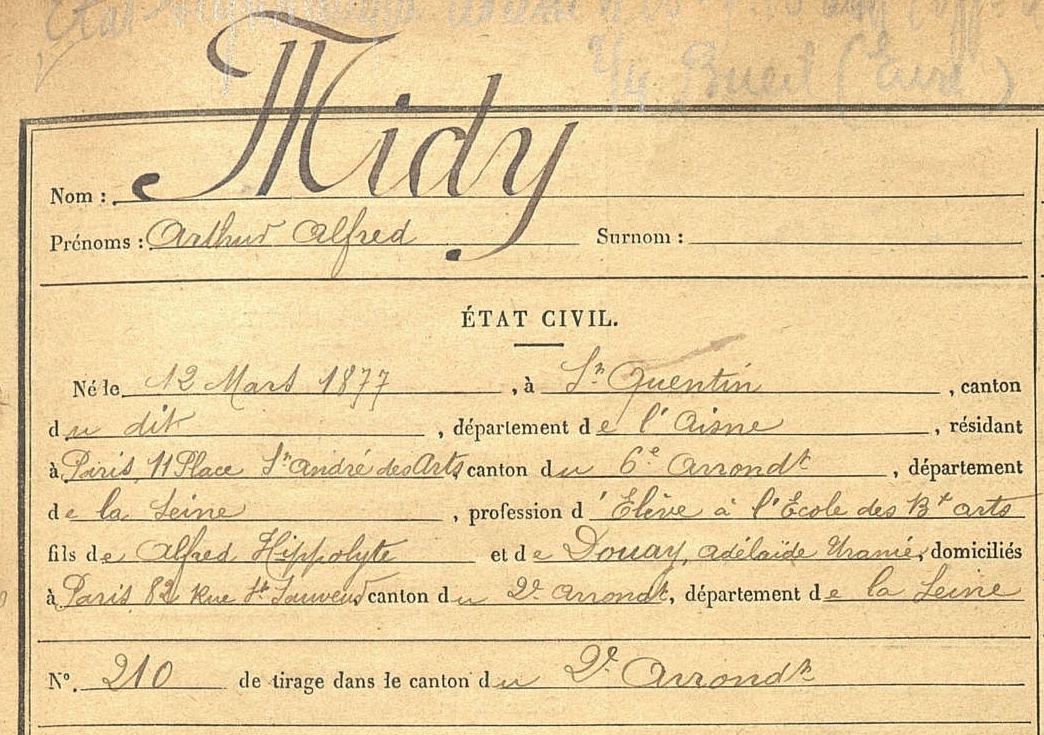 Etat
7/4 Bueil (Eure)
Midy
Nom :
Prénoms : Arthur Alfred Surnom :
ÉTAT CIVIL.
Né le 12 Mars 1877, à St Quentin, canton
du dit, département de l'Aisne, résidant
à Paris, 11 Place St André des Arts canton du 6e Arrondt, département
de la Seine, profession d'Elève à l'Ecole des Bx arts
fils de Alfred Hippolyte et de Douay, Adélaïde Uranie, domiciliés
à Paris, 82 Rue St Sauveur canton du 2e Arrondt, département de la Seine
N°. 210 de tirage dans le canton du 2e Arrondt